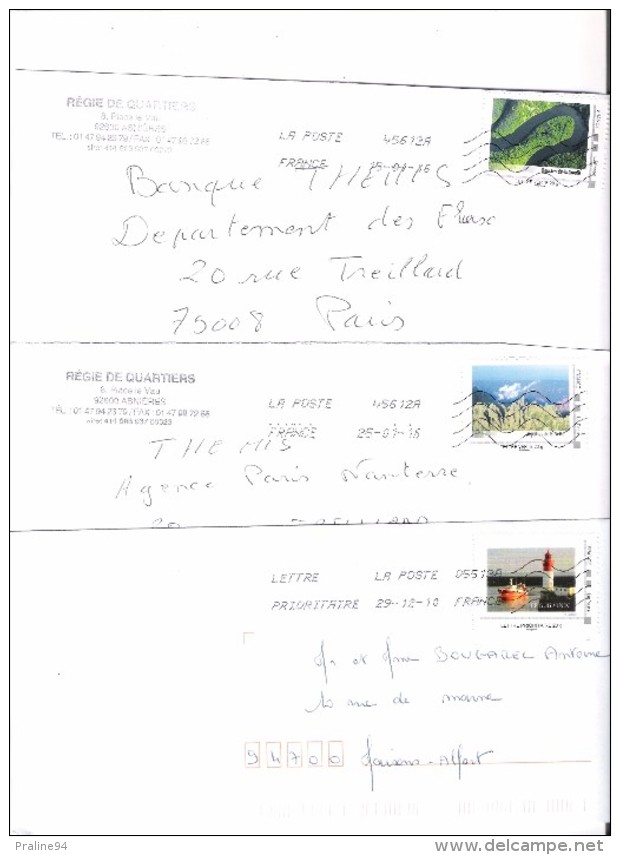 RÉGIE DE QUARTIERS
6, Place le Vau
92600 ASNIÈRES
TEL : 01 47 94 23 79 / FAX : 01 47 98 72 88
LA POSTE 45612A
FRANCE
Banque THEMIS
Departement des
20 rue Treillard
75008 Paris
RÉGIE DE QUARTIERS
6, Place le Vau
92600 ASNIÈRES
TÉL : 01 47 94 23 79 / FAX : 01 47 98 72 88
LA POSTE 45612A
FRANCE 25-01-16
THEMIS
Agence Paris Nanterre
LETTRE LA POSTE 05513A
PRIORITAIRE 29-12-10 FRANCE
Mr et Mme BOUGAREL Antoine
10 rue de marne
94700 Maisons-Alfort
Praline94
www.delcampe.net